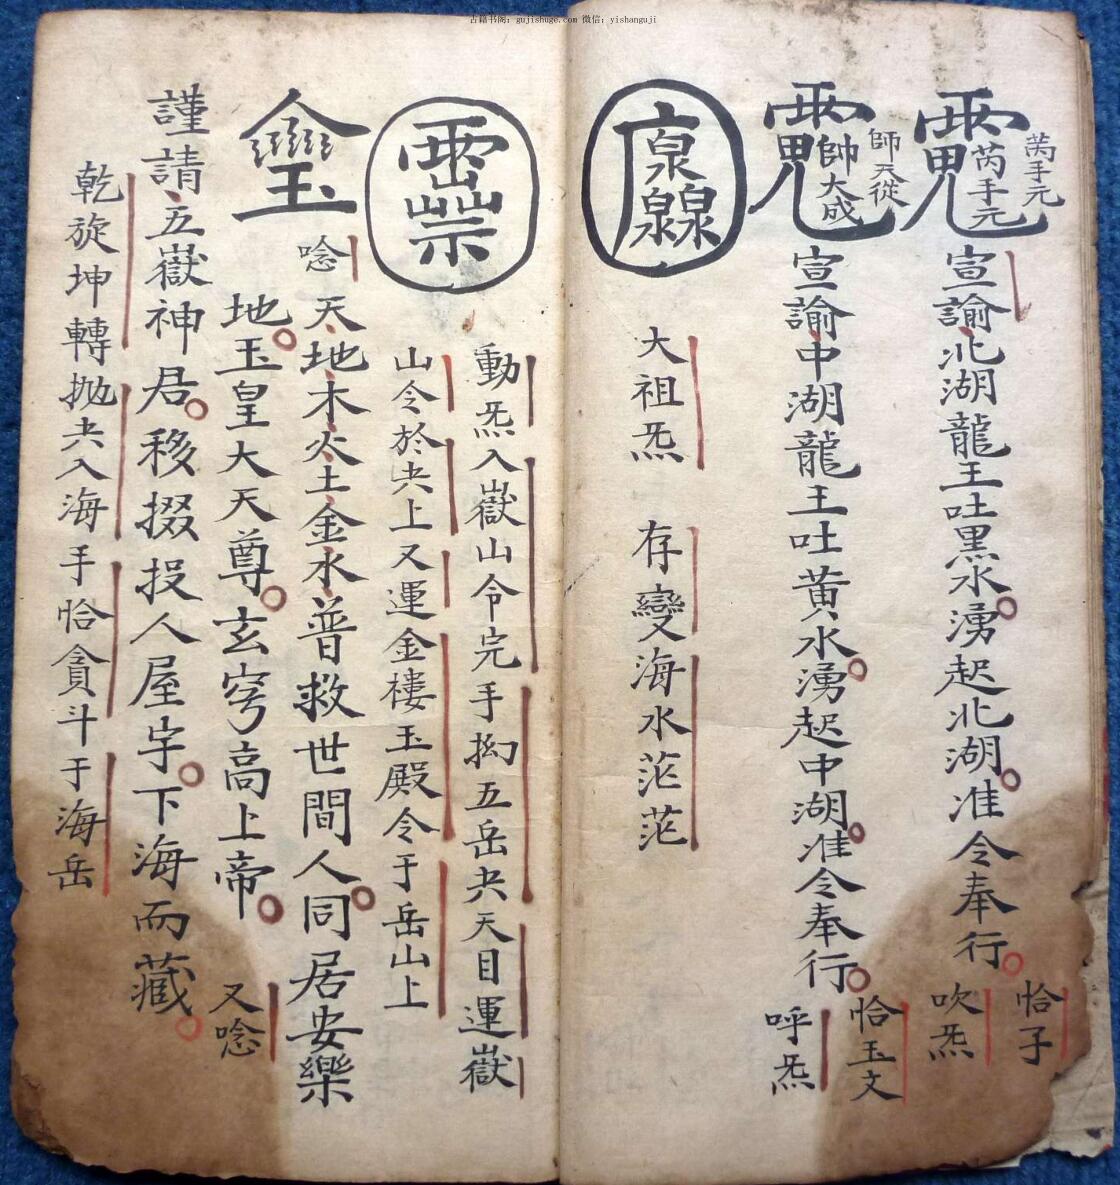 古籍书阁：gujishuge.com 微信：yishanguji
芮手元
芮手元
宣諭北湖龍王吐黑水湧起北湖准令奉行
恰子
吹炁
師天從
帥大成
宣諭中湖龍王吐黃水湧起中湖准令奉行
恰玉文
呼炁
大祖炁 存變海水茫茫
動炁入嶽山令完手拗五岳夬天目運嶽
山令於夬上又運金樓玉殿令于岳山上
唸
天地木火土金水普救世間人同居安樂
地玉皇大天尊玄穹高上帝
又唸
謹請五嶽神君移掇投人屋宇下海而藏
乾旋坤轉拋夬入海手恰貪斗于海岳